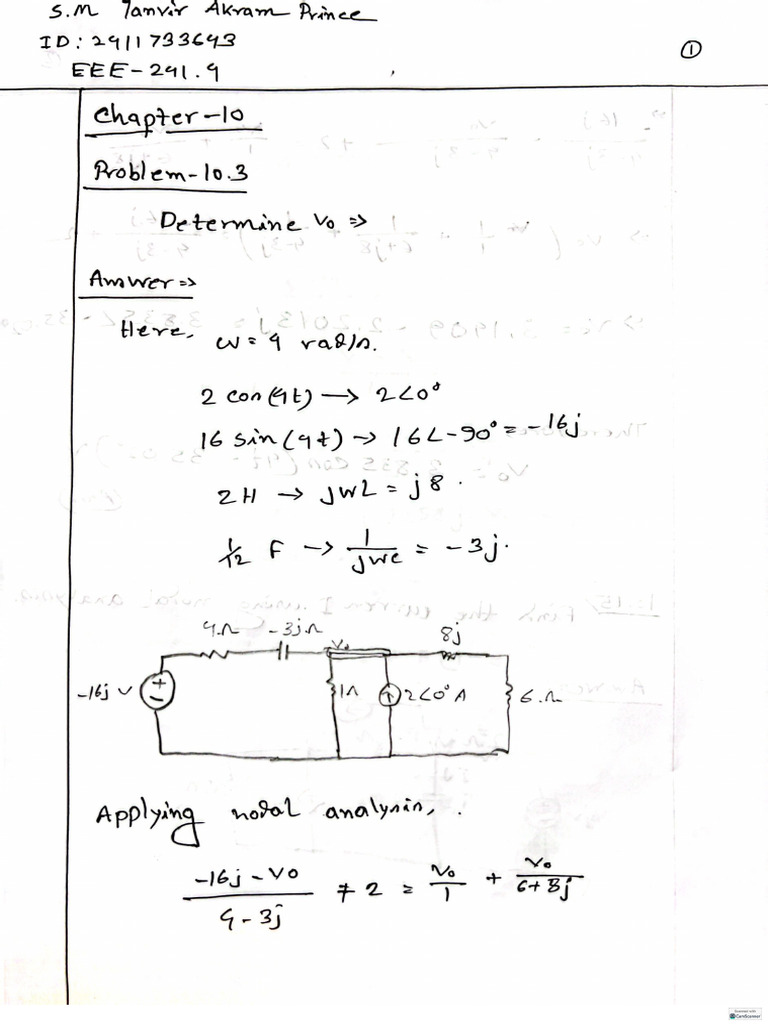 S.M Tanvir Akram Prince
ID: 2411733643
①
EEE-241.9
Chapter-10
Problem-10.3
Determine Vo ⇒
Answer ⇒
Here, ω = 4 rad/s.
2 cos(4t) → 2∠0°
16 sin(4t) → 16∠-90° = -16j
2H → jωL = j8.
1/12 F → 1/jωc = -3j.
4Ω -3jΩ Vo 8j
-16j V + - 1Ω 2∠0° A 6Ω
Applying nodal analysis,
(-16j - Vo)/(4 - 3j) + 2 = Vo/1 + Vo/(6+8j)
CamScanner